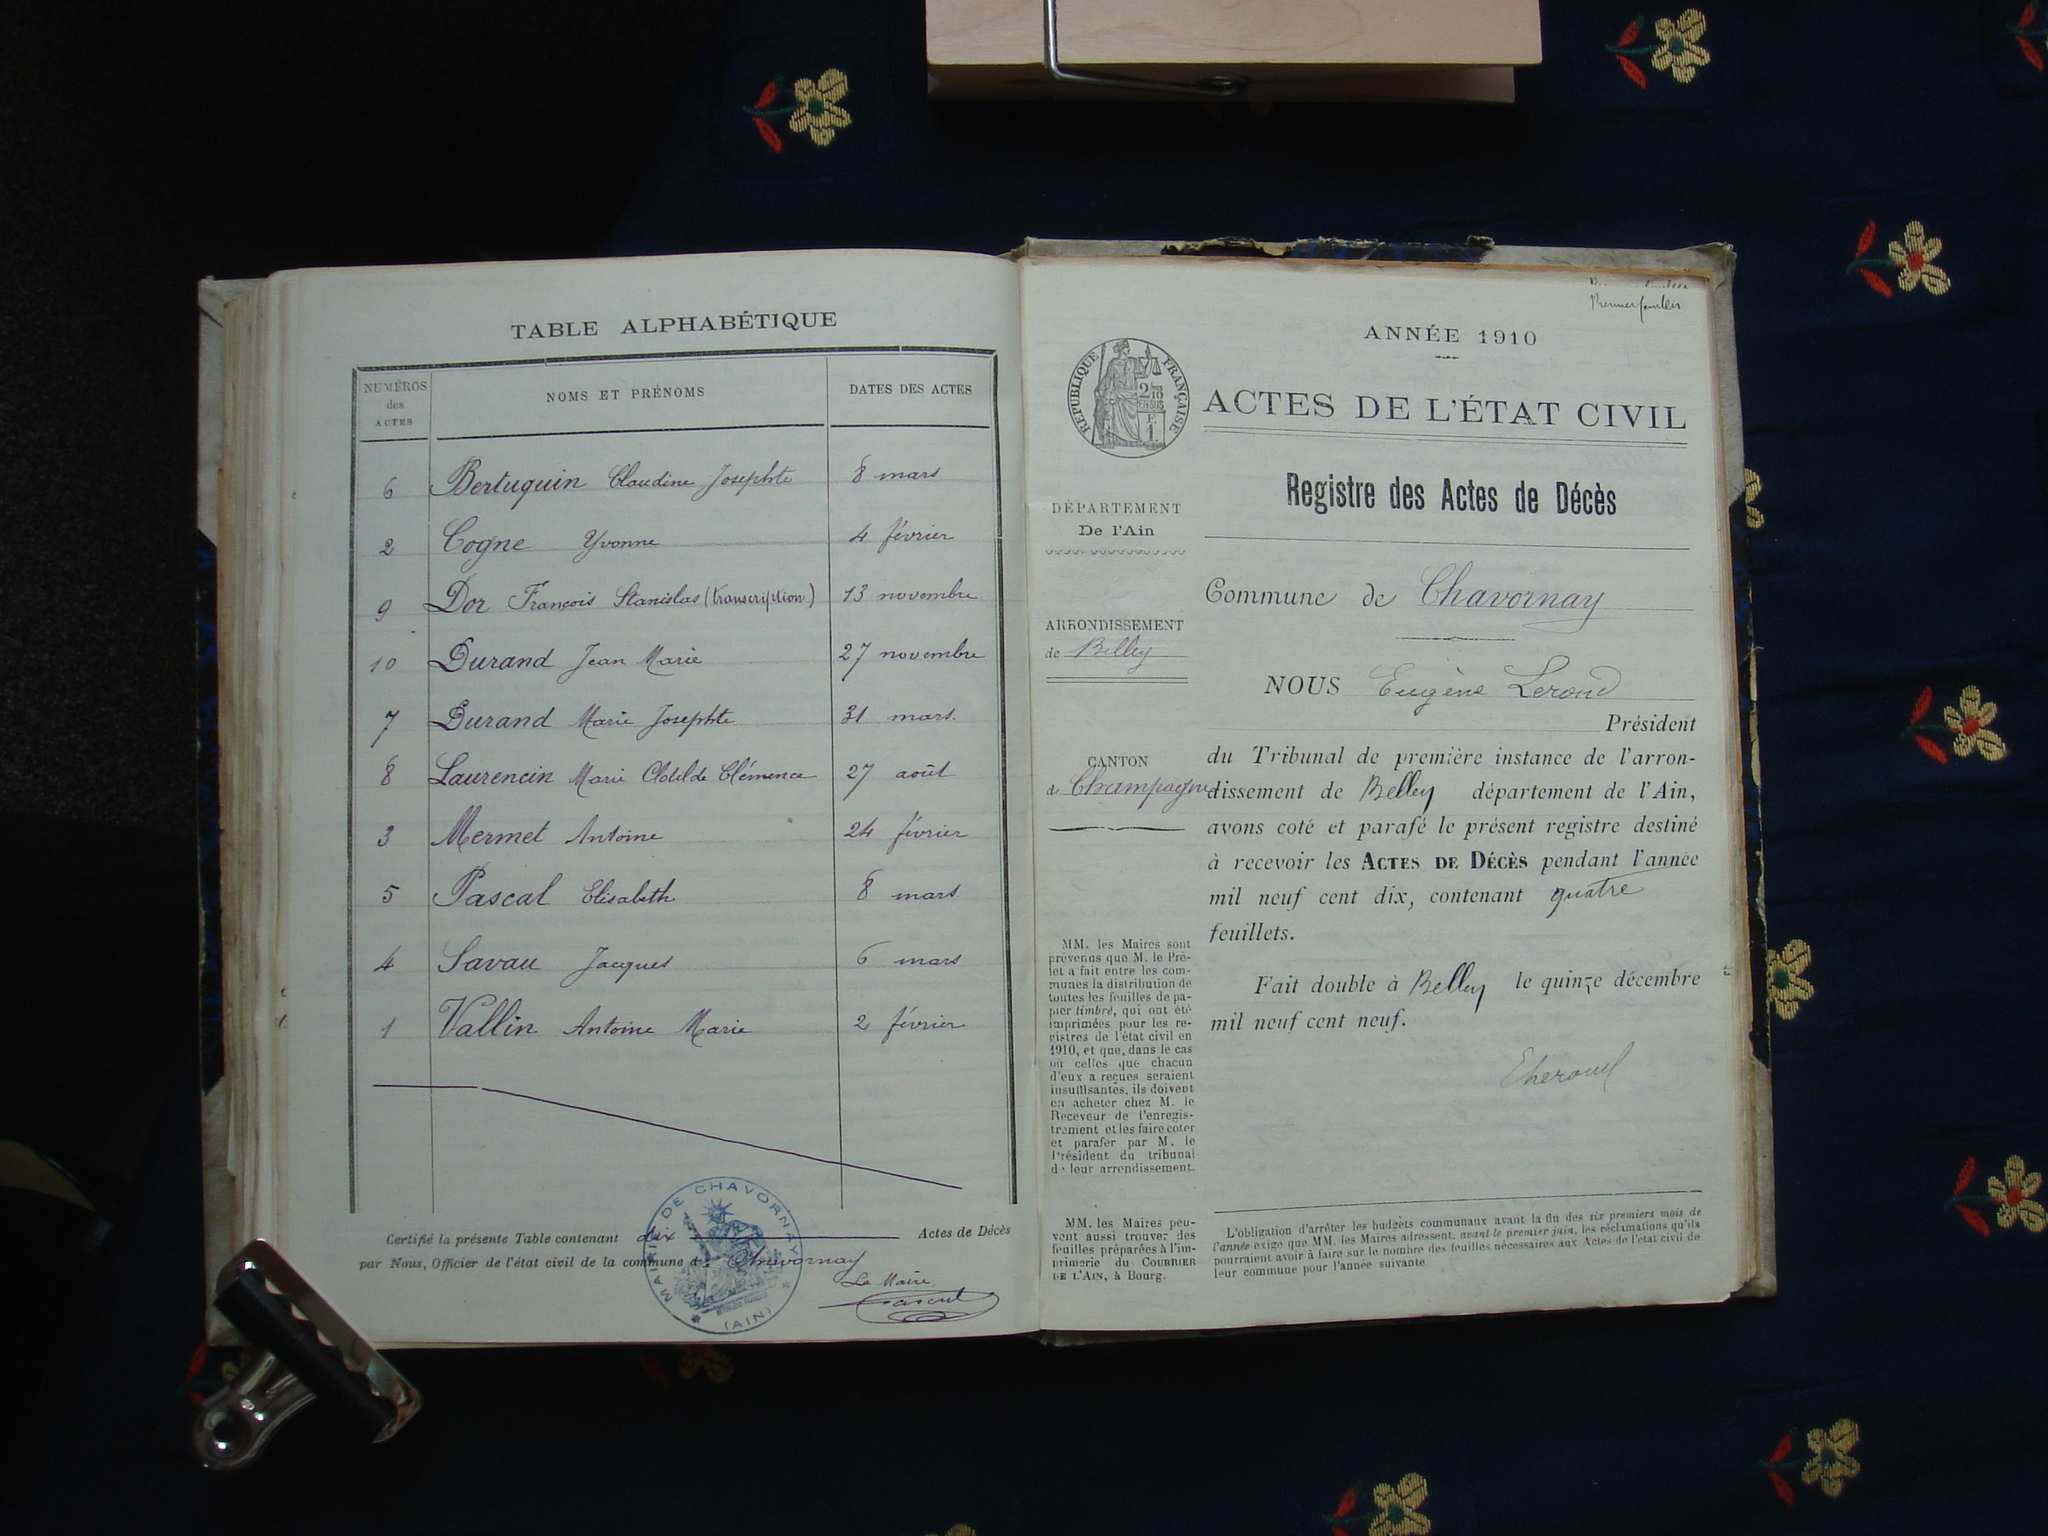 TABLE ALPHABÉTIQUE
NUMÉROS des ACTES NOMS ET PRÉNOMS DATES DES ACTES
6 Bertuquin Claudine Josephte 8 mars
2 Cogne Yvonne 4 février
9 Dor François Stanislas (transcription) 13 novembre
10 Durand Jean Marie 27 novembre
7 Durand Marie Josephte 31 mars.
8 Laurencin Marie Clotilde Clémence 27 août
3 Mermet Antoine 24 février
5 Pascal Elisabeth 8 mars
4 Savau Jacques 6 mars
1 Vallin Antoine Marie 2 février
Certifié la présente Table contenant dix Actes de Décès
par Nous, Officier de l'état civil de la commune de Chavornay
Le Maire
MAIRIE DE CHAVORNAY
(AIN)
Premier feuillet
ANNÉE 1910
RÉPUBLIQUE FRANÇAISE
ACTES DE L'ÉTAT CIVIL
Registre des Actes de Décès
DÉPARTEMENT
De l'Ain
ARRONDISSEMENT
de Belley
CANTON
de Champagne
MM. les Maires sont
prévenus que M. le Pré-
fet a fait entre les com-
munes la distribution de
toutes les feuilles de pa-
pier timbré, qui ont été
imprimées pour les re-
gistres de l'état civil en
1910, et que, dans le cas
où celles que chacun
d'eux a reçues seraient
insuffisantes, ils doivent
en acheter chez M. le
Receveur de l'enregis-
trement et les faire coter
et parafer par M. le
Président du tribunal
de leur arrondissement.
MM. les Maires peu-
vent aussi trouver des
feuilles préparées à l'im-
primerie du COURRIER
DE L'AIN, à Bourg.
Commune de Chavornay
NOUS Eugène Lerond
Président
du Tribunal de première instance de l'arron-
dissement de Belley département de l'Ain,
avons coté et parafé le présent registre destiné
à recevoir les ACTES DE DÉCÈS pendant l'année
mil neuf cent dix, contenant quatre
feuillets.
Fait double à Belley le quinze décembre
mil neuf cent neuf.
L'obligation d'arrêter les budgets communaux avant la fin des six premiers mois de
l'année exige que MM. les Maires adressent, avant le premier juin, les réclamations qu'ils
pourraient avoir à faire sur le nombre des feuilles nécessaires aux Actes de l'état civil de
leur commune pour l'année suivante